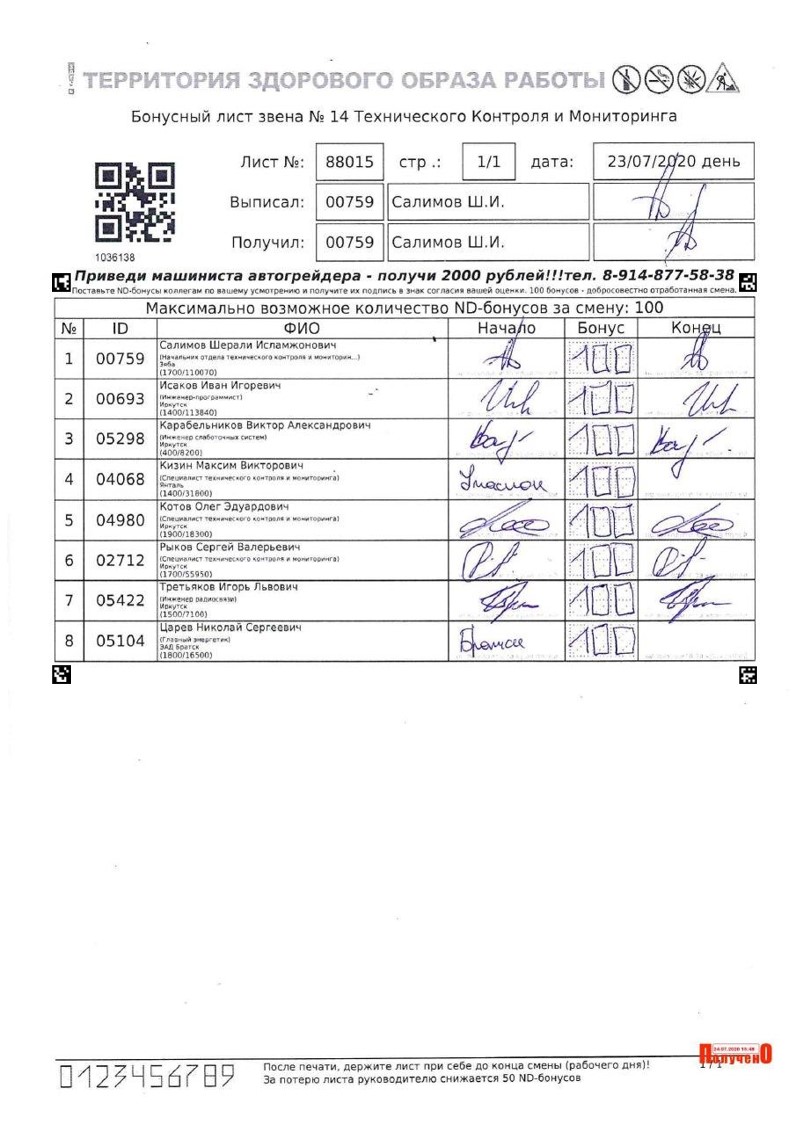 ТЕРРИТОРИЯ ЗДОРОВОГО ОБРАЗА РАБОТЫ
Бонусный лист звена № 14 Технического Контроля и Мониторинга
Лист №: 88015 стр .: 1/1 дата: 23/07/2020 день
Выписал: 00759 Салимов Ш.И.
Получил: 00759 Салимов Ш.И.
1036138
Приведи машиниста автогрейдера - получи 2000 рублей!!!тел. 8-914-877-58-38
Поставьте ND-бонусы коллегам по вашему усмотрению и получите их подпись в знак согласия вашей оценки. 100 бонусов - добросовестно отработанная смена.
Максимально возможное количество ND-бонусов за смену: 100
№ ID ФИО Начало Бонус Конец
1 00759 Салимов Шерали Исламжонович 100
(Начальник отдела технического контроля и мониторин...)
(1700/110070)
2 00693 Исаков Иван Игоревич 100
(Инженер-программист)
Иркутск
(1400/113840)
3 05298 Карабельников Виктор Александрович 100
(Инженер слаботочных систем)
Иркутск
(400/8200)
4 04068 Кизин Максим Викторович 100
(Специалист технического контроля и мониторинга)
Янталь
(1400/31800)
5 04980 Котов Олег Эдуардович 100
(Специалист технического контроля и мониторинга)
Иркутск
(1900/18300)
6 02712 Рыков Сергей Валерьевич 100
(Специалист технического контроля и мониторинга)
Иркутск
(1700/55950)
7 05422 Третьяков Игорь Львович 100
(Инженер радиосвязи)
Иркутск
(1500/7100)
8 05104 Царев Николай Сергеевич 100
(Главный энергетик)
ЗАД Братск
(1800/16500)
0123456789
После печати, держите лист при себе до конца смены (рабочего дня)!
За потерю листа руководителю снижается 50 ND-бонусов
1/1
Получено